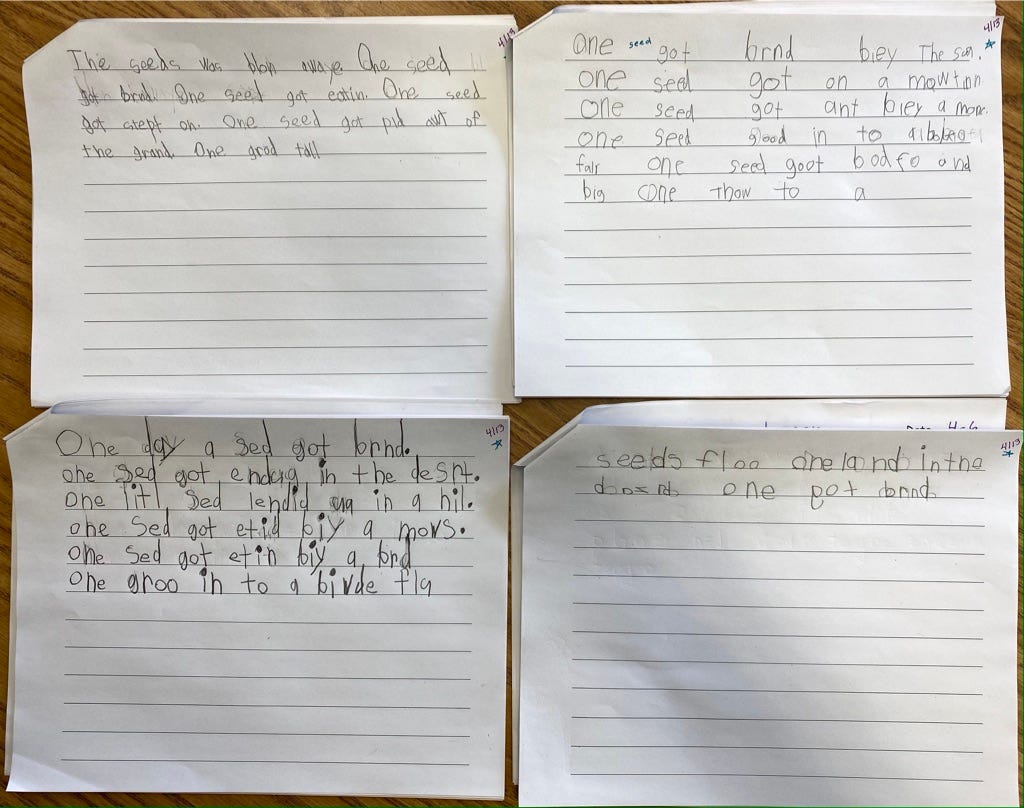 4/13
The seeds was blon awaye One seed
got brnd. One seed got eatin. One seed
got stept on. One seed got pld awt of
the grand. One grod tall
4/13
One seed got brnd biey The sun.
one seed got on a mowton
one seed got ant biey a mone.
one seed grood in to a
fair one seed goot and
big one Thow to a
4/13
One day a sed got brnd.
one sed got in the desrt.
one litl sed lendid in a hil.
one sed got etid biy a movs.
one sed got etin biy a brd
one groo in to a bivde fla
4/13
seeds floo one land in the
one got brnd